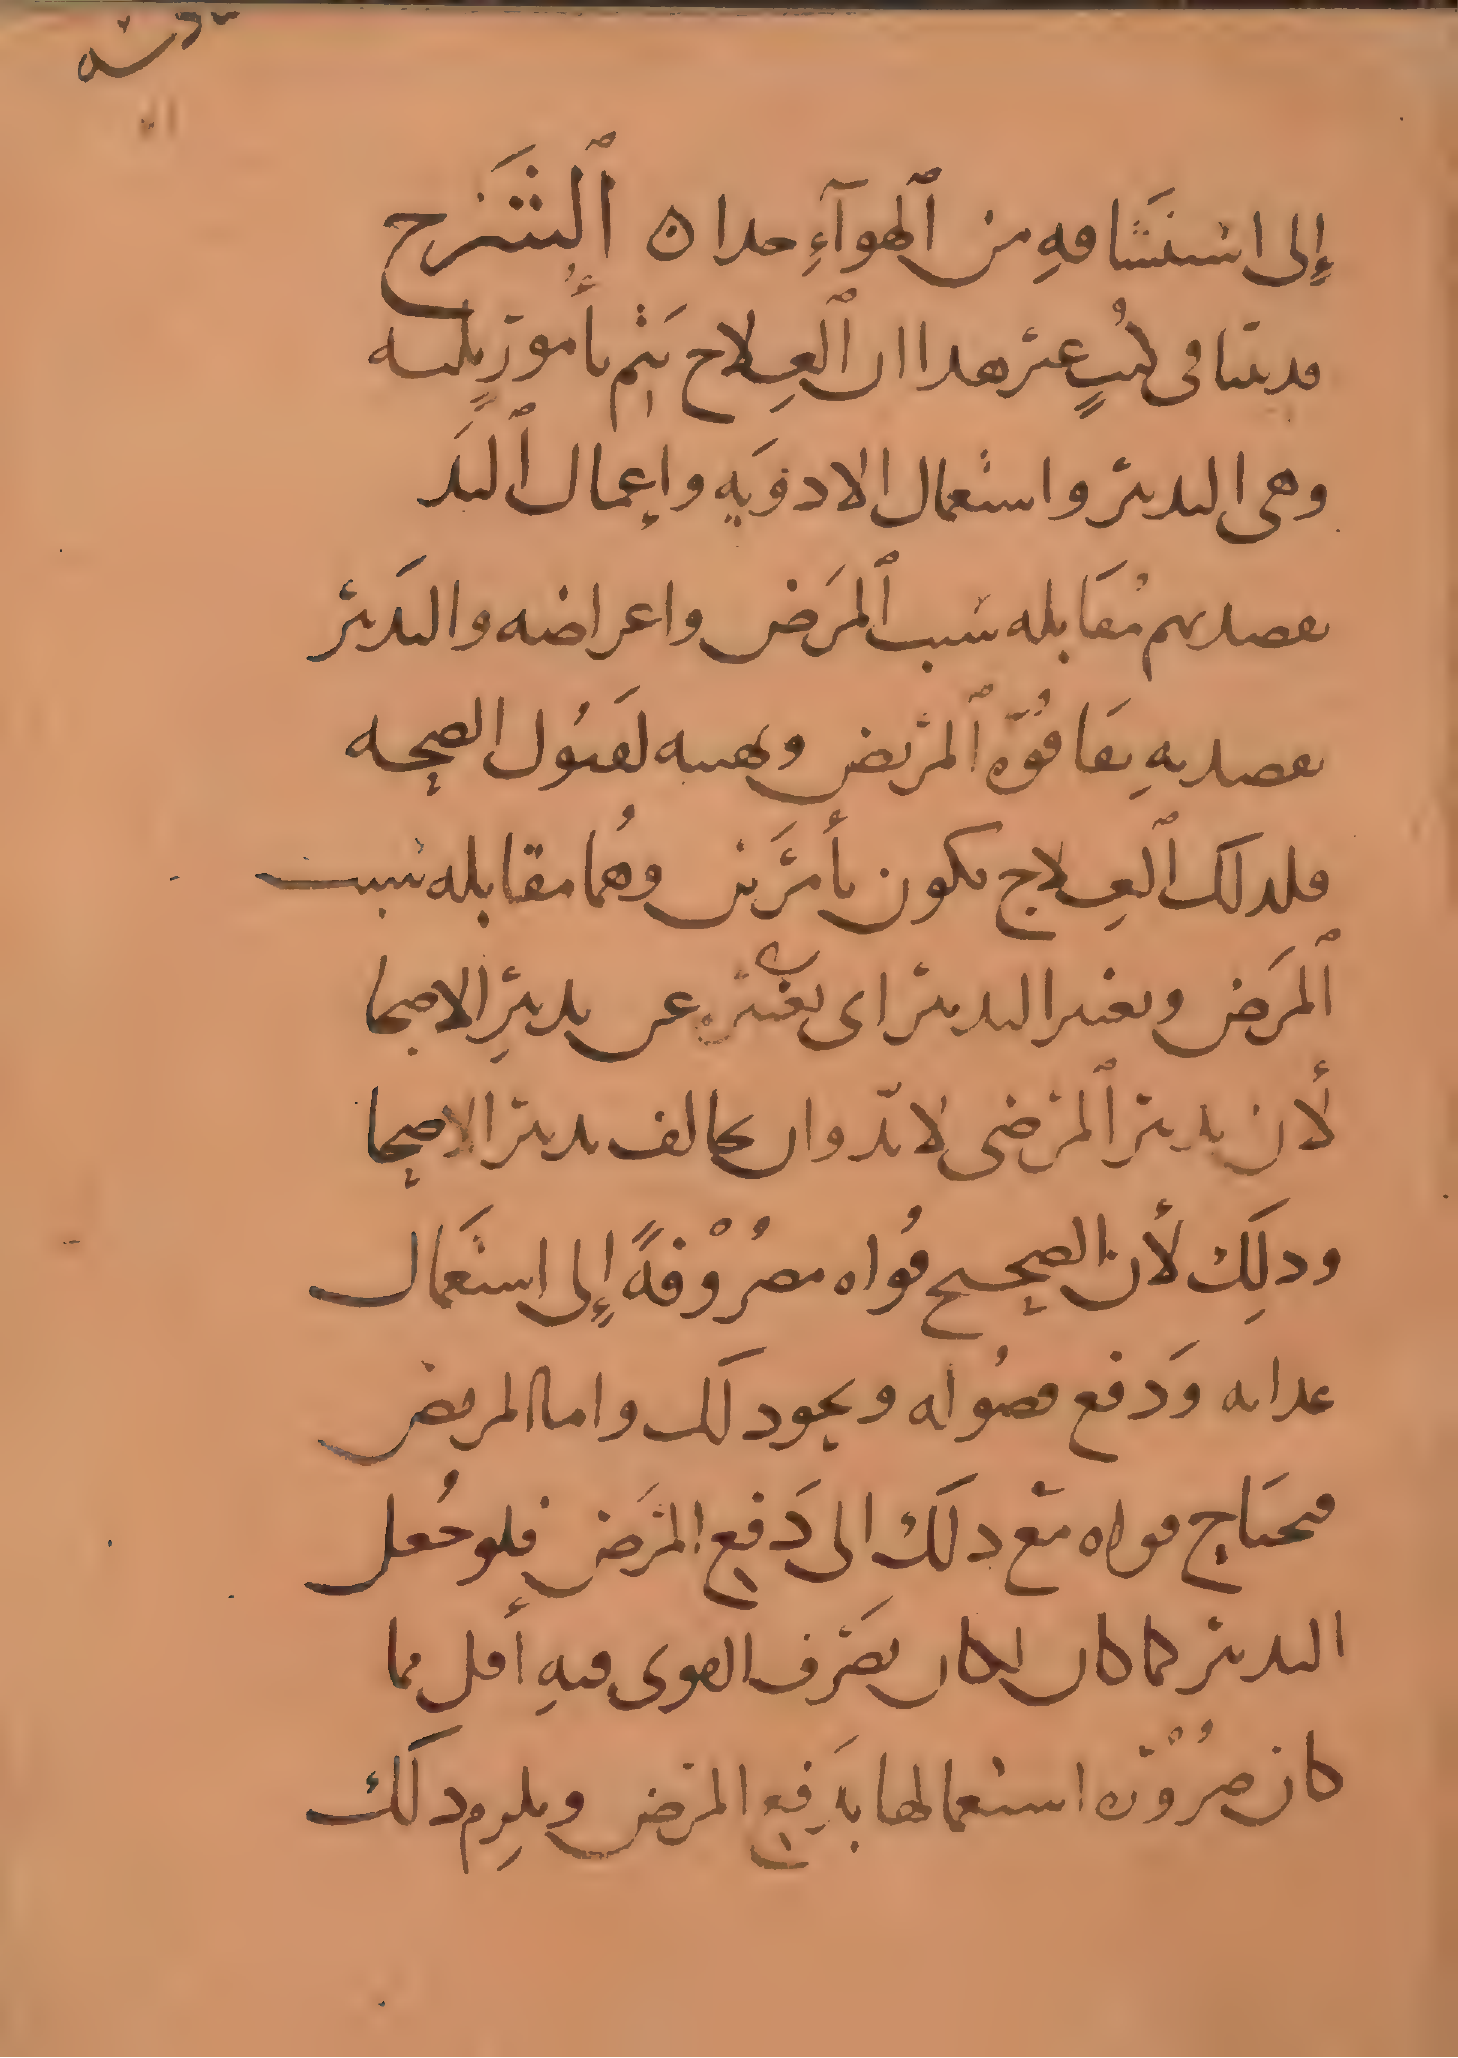 إلى استنشاقهِ من ٱلهوآءِ جدا ٥ ٱلشَّرح
قد بينا في كتُبٍ غير هذا ان ٱلعِلاج يَتم بأُمورٍ ثلثه
وهي التدبير واستعمال الادوَيه وإعمال ٱليَد
يقصد بهم مُقَابله سَبب ٱلمرَض واعراضه والتدَبير
يقصد بهِ بقَا قُوَّه ٱلمريض وتهيبه لقَبُول الصحه
فلذلك ٱلعِلاج يكون بأمرَين وهُما مقابله سبب
ٱلمرَض وتغير التدبير اى تغييره عن تدبيرِ الاصحا
لأن تدبير ٱلمرضى لا بدّ وان يخالف تدبير الاصحا
وذلِك لأن الصحيح قُواه مصرُوْفةً إلى استعَمال
غذايه وَدفع فضُوله ونحو ذلَك واما المريض
فيحتَاج قواه مَع ذلَك الى دَفع المرَض فلو جُعل
التدبير كما كان لكان تصَرف القوى فيهِ أقل مما
كان ضرُوْره استعمالها بدَفع المرض ويلزم ذلك